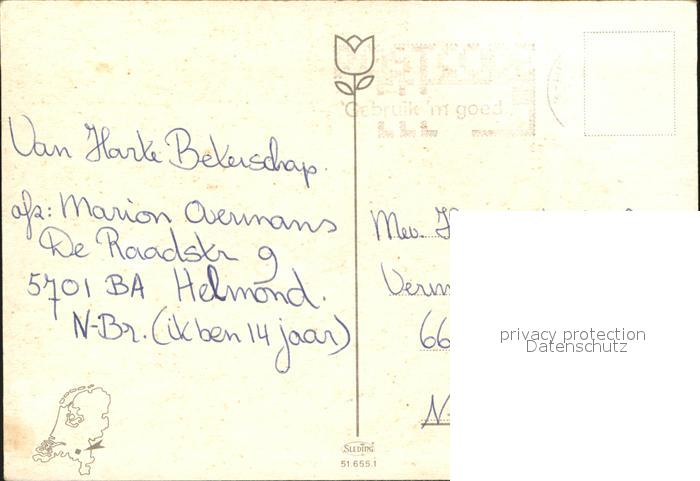 'Gebruik 'm goed
Van Harte Beterschap.
afz: Marion Overmans
De Raadstr 9
5701 BA Helmond.
N-Br. (ik ben 14 jaar)
Mev.
66
N-
privacy protection
Datenschutz
SLEDING
51.655.1